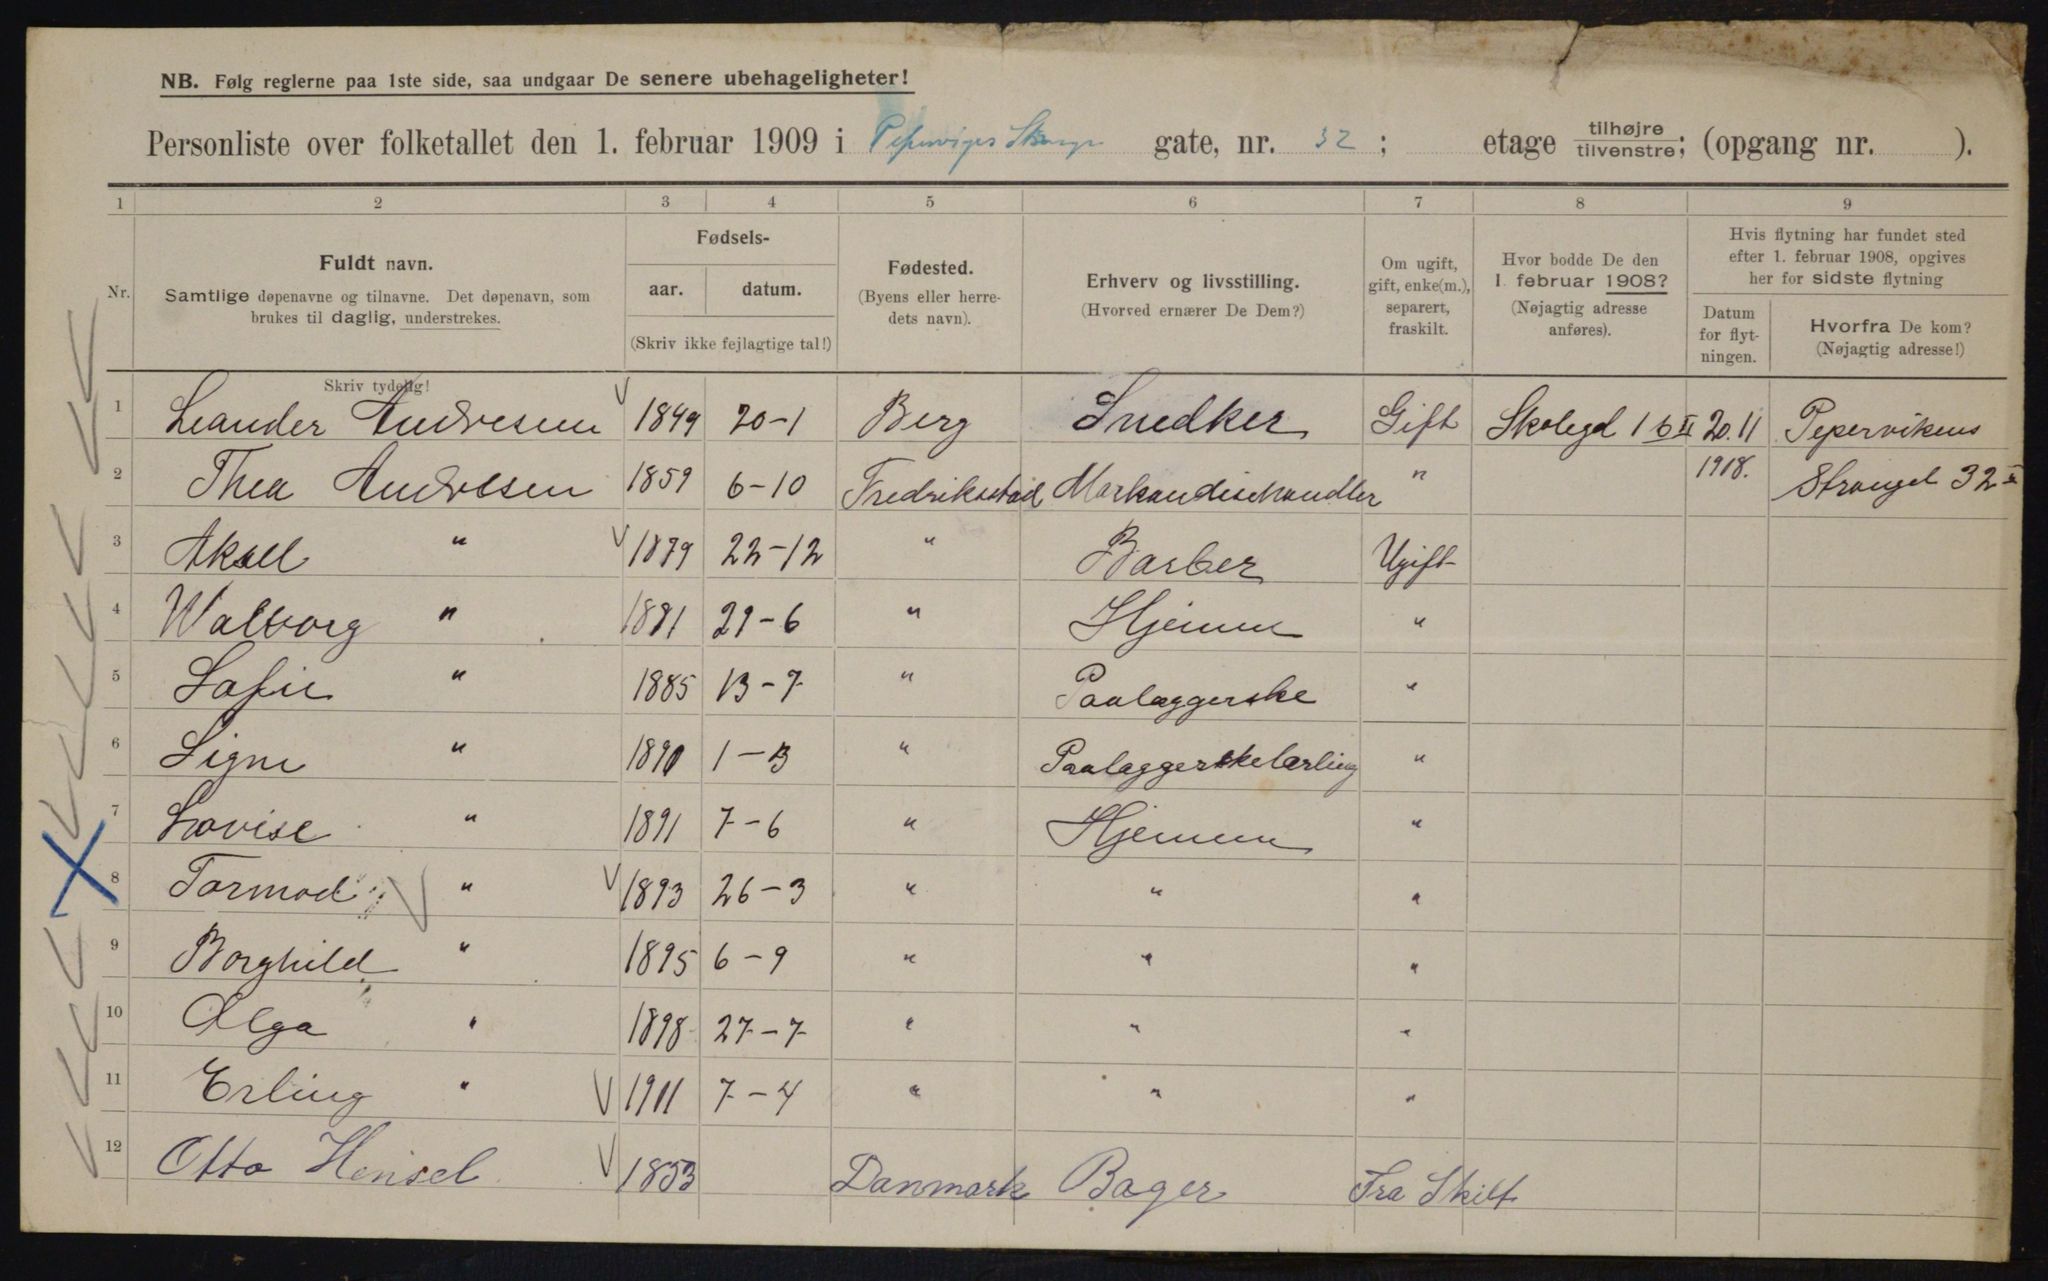 NB. Følg reglerne paa 1ste side, saa undgaar De senere ubehageligheter!
Personliste over folketallet den 1. februar 1909 i Pepervigens gate, nr. 32; etage tilhøjre tilvenstre; (opgang nr. ).
1 2 3 4 5 6 7 8 9
Nr.
Fuldt navn.
Samtlige døpenavne og tilnavne. Det døpenavn, som
brukes til daglig, understrekes.
Skriv tydelig!
Fødsels-
aar. datum.
(Skriv ikke fejlagtige tal!)
Fødested.
(Byens eller herre-
dets navn).
Erhverv og livsstilling.
(Hvorved ernærer De Dem?)
Om ugift,
gift, enke(m.),
separert,
fraskilt.
Hvor bodde De den
1. februar 1908?
(Nøjagtig adresse
anføres).
Hvis flytning har fundet sted
efter 1. februar 1908, opgives
her for sidste flytning
Datum
for flyt-
ningen.
Hvorfra De kom?
(Nøjagtig adresse!)
1 Leander Andresen 1849 20-1 Berg Snedker Gift Skolegd 16 II 20.11 Pepervikens
2 Thea Andresen 1859 6-10 Fredriksstad Markandisehandler " 1908. Strangd 32
3 Aksel " 1879 22-12 " Barber Ugift
4 Walborg " 1881 29-6 " Hjemme "
5 Sofie " 1885 13-7 " Paalæggerske "
6 Signe " 1890 1-3 " Paalæggerskelærling "
7 Lovise " 1891 7-6 " Hjemme "
8 Tormod " 1893 26-3 " " "
9 Borghild " 1895 6-9 " " "
10 Olga " 1898 27-7 " " "
11 Erling " 1901 7-4 " " "
12 Otto Hensel 1853 Danmark Bager Fra Skilt